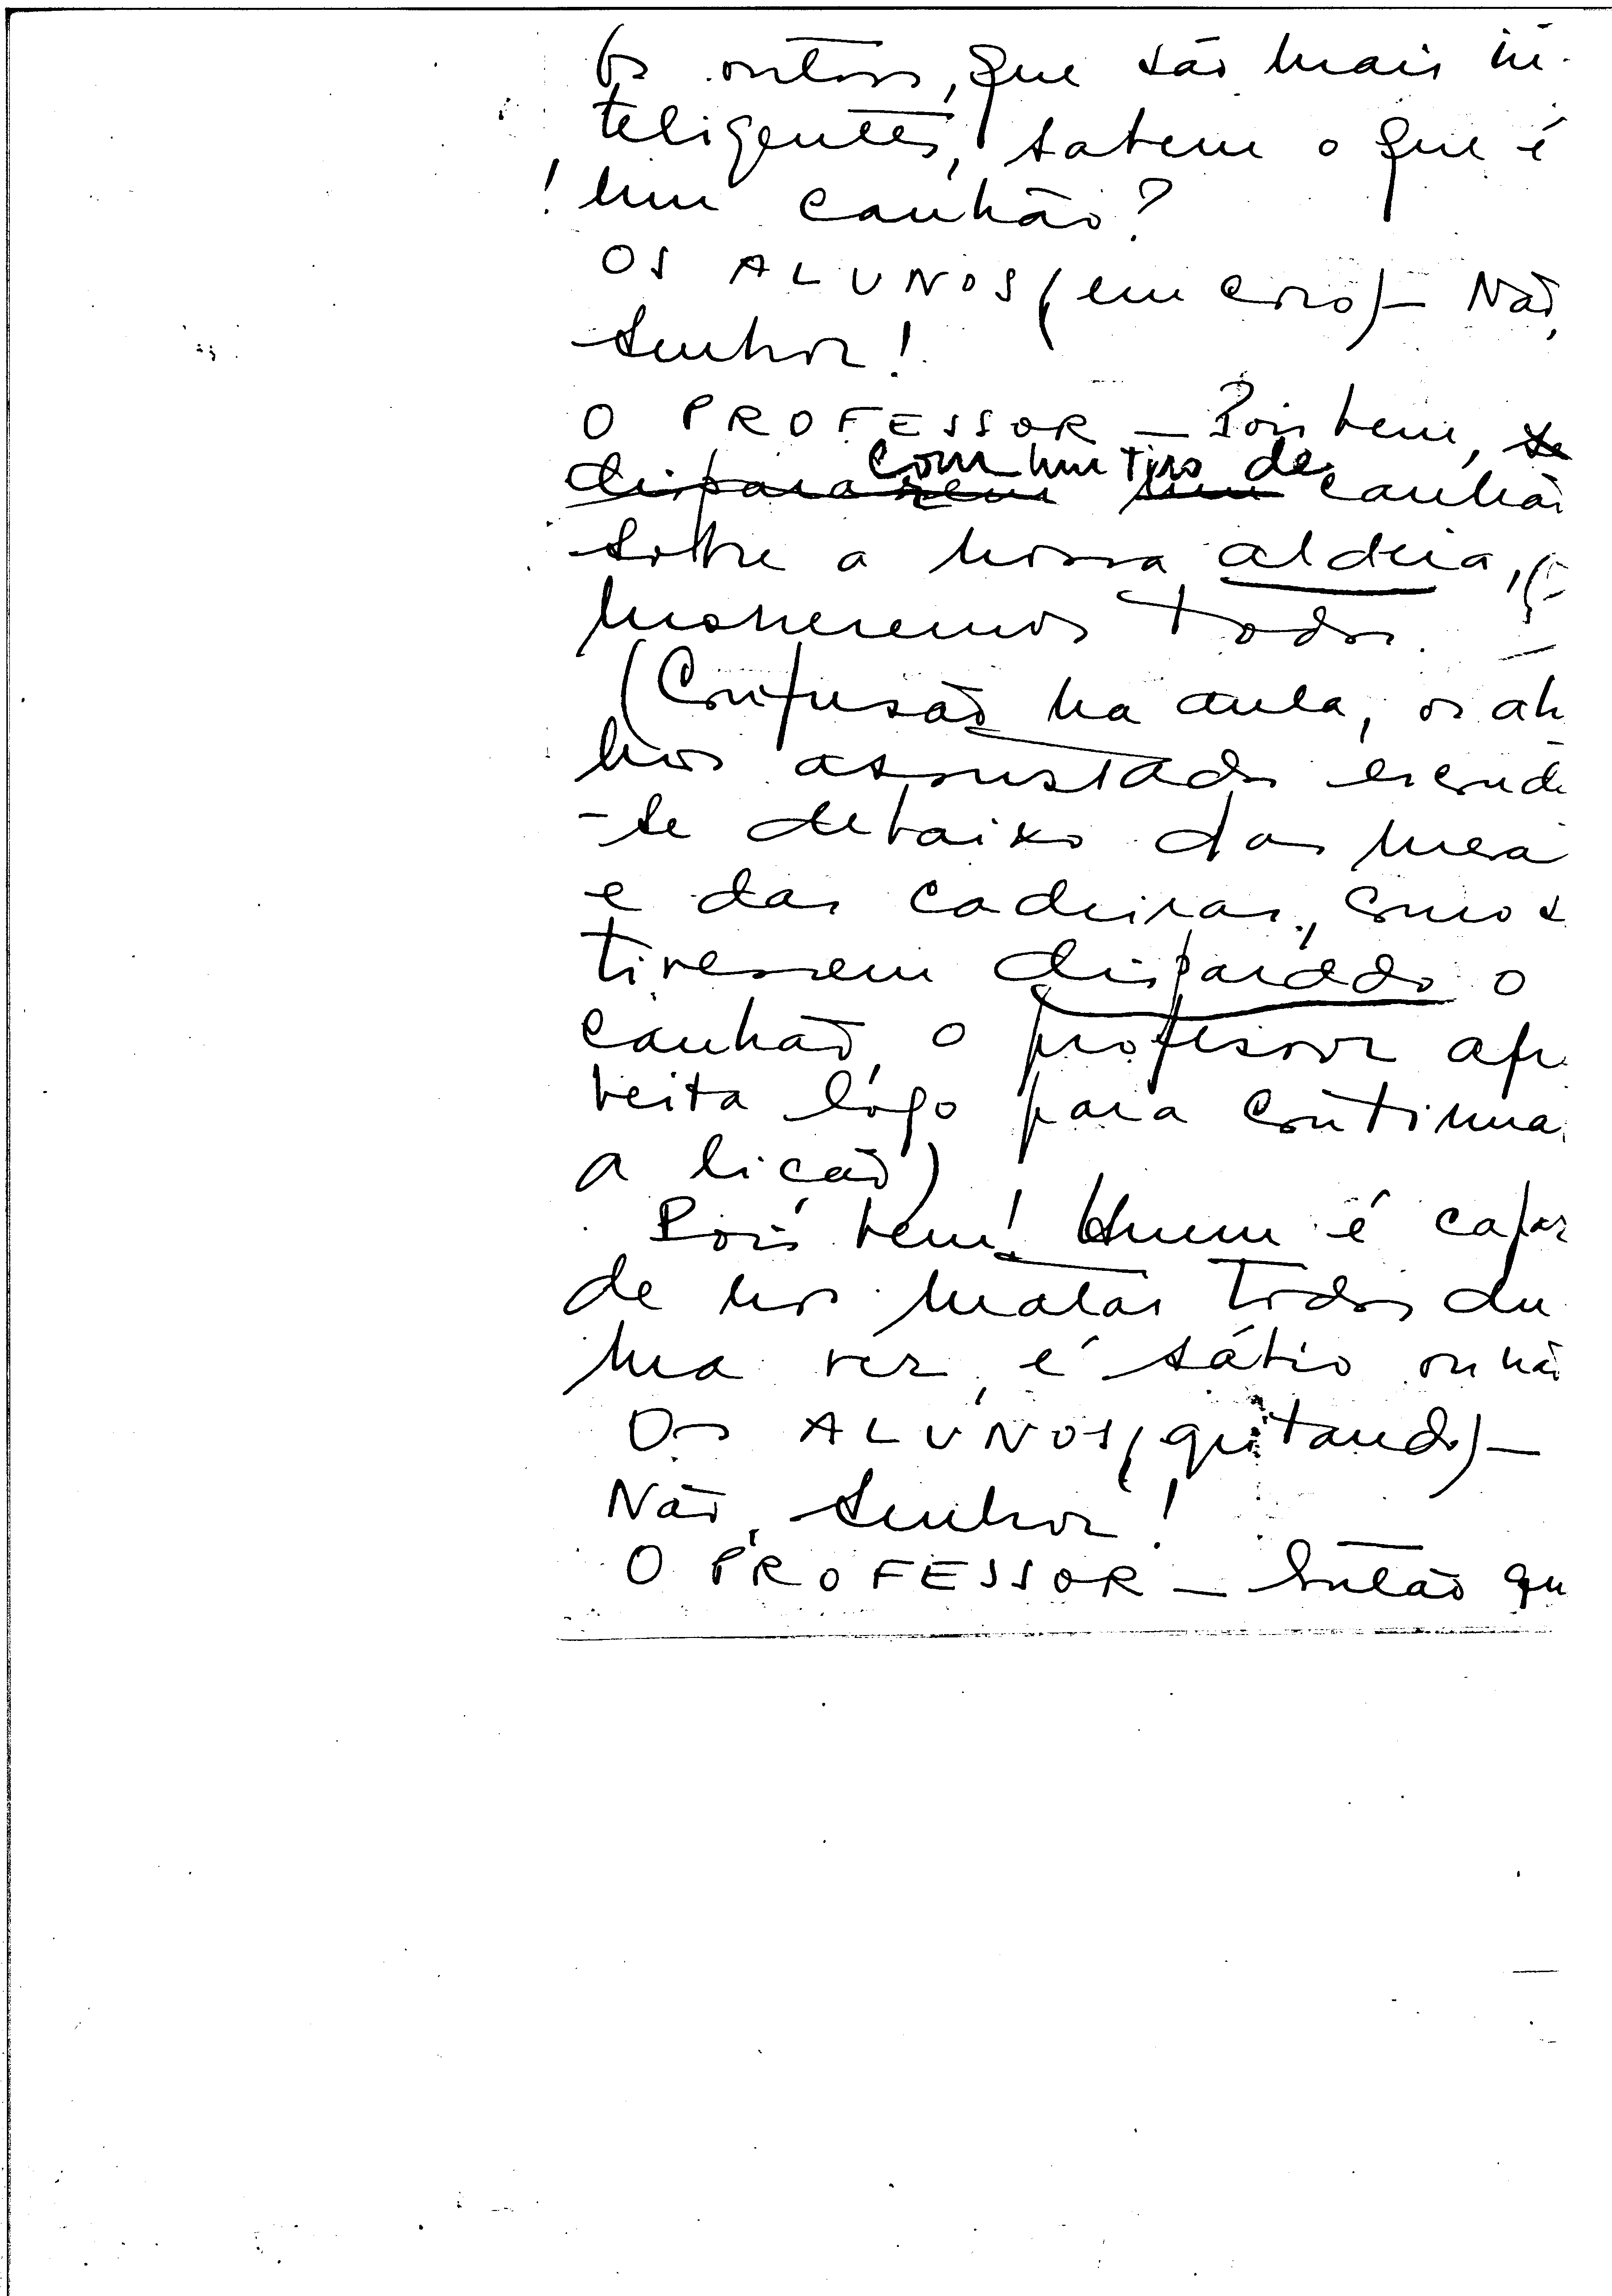 Os outros, que são mais in-
teligentes, sabem o que é
um canhão?
OS ALUNOS (em coro) — Não,
Senhor!
O PROFESSOR — Pois bem, se
dispararem um com um tiro de canhão
sobre a nossa aldeia,
morreremos todos.
(Confusão na aula, os alu
nos assustados esconde
-se debaixo das mesa
e das cadeiras, como s
tivessem disparado o
canhão, o professor apr
veita logo para continua
a lição)
Pois bem! é capaz
de nos matar todos du
ma vez, é sábio ou não
Os ALUNOS (gritando) —
Não, Senhor!
O PROFESSOR — Então qu